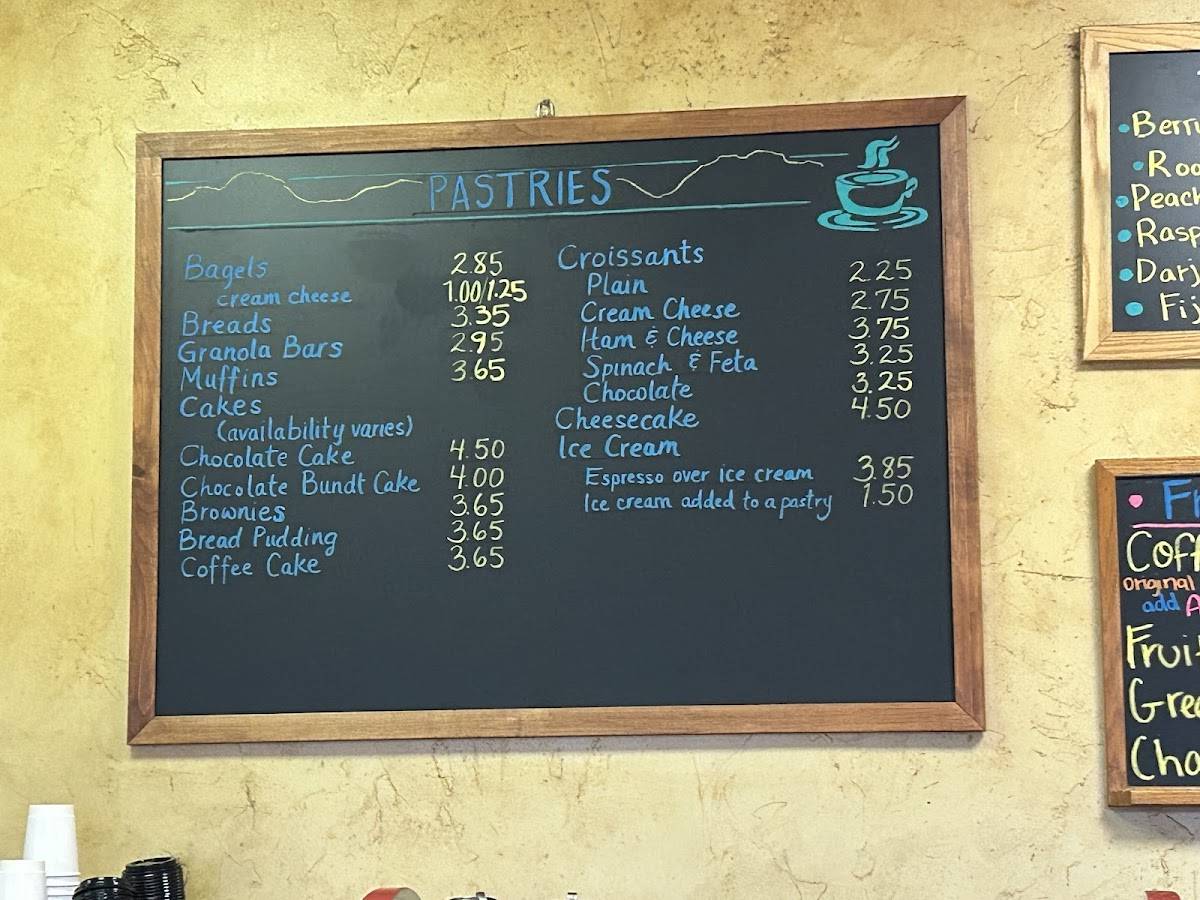 PASTRIES
Bagels 2.85
cream cheese 1.00/1.25
Breads 3.35
Granola Bars 2.95
Muffins 3.65
Cakes
(availability varies)
Chocolate Cake 4.50
Chocolate Bundt Cake 4.00
Brownies 3.65
Bread Pudding 3.65
Coffee Cake 3.65
Croissants
Plain 2.25
Cream Cheese 2.75
Ham & Cheese 3.75
Spinach & Feta 3.25
Chocolate 3.25
Cheesecake 4.50
Ice Cream
Espresso over ice cream 3.85
Ice cream added to a pastry 1.50
Original
add